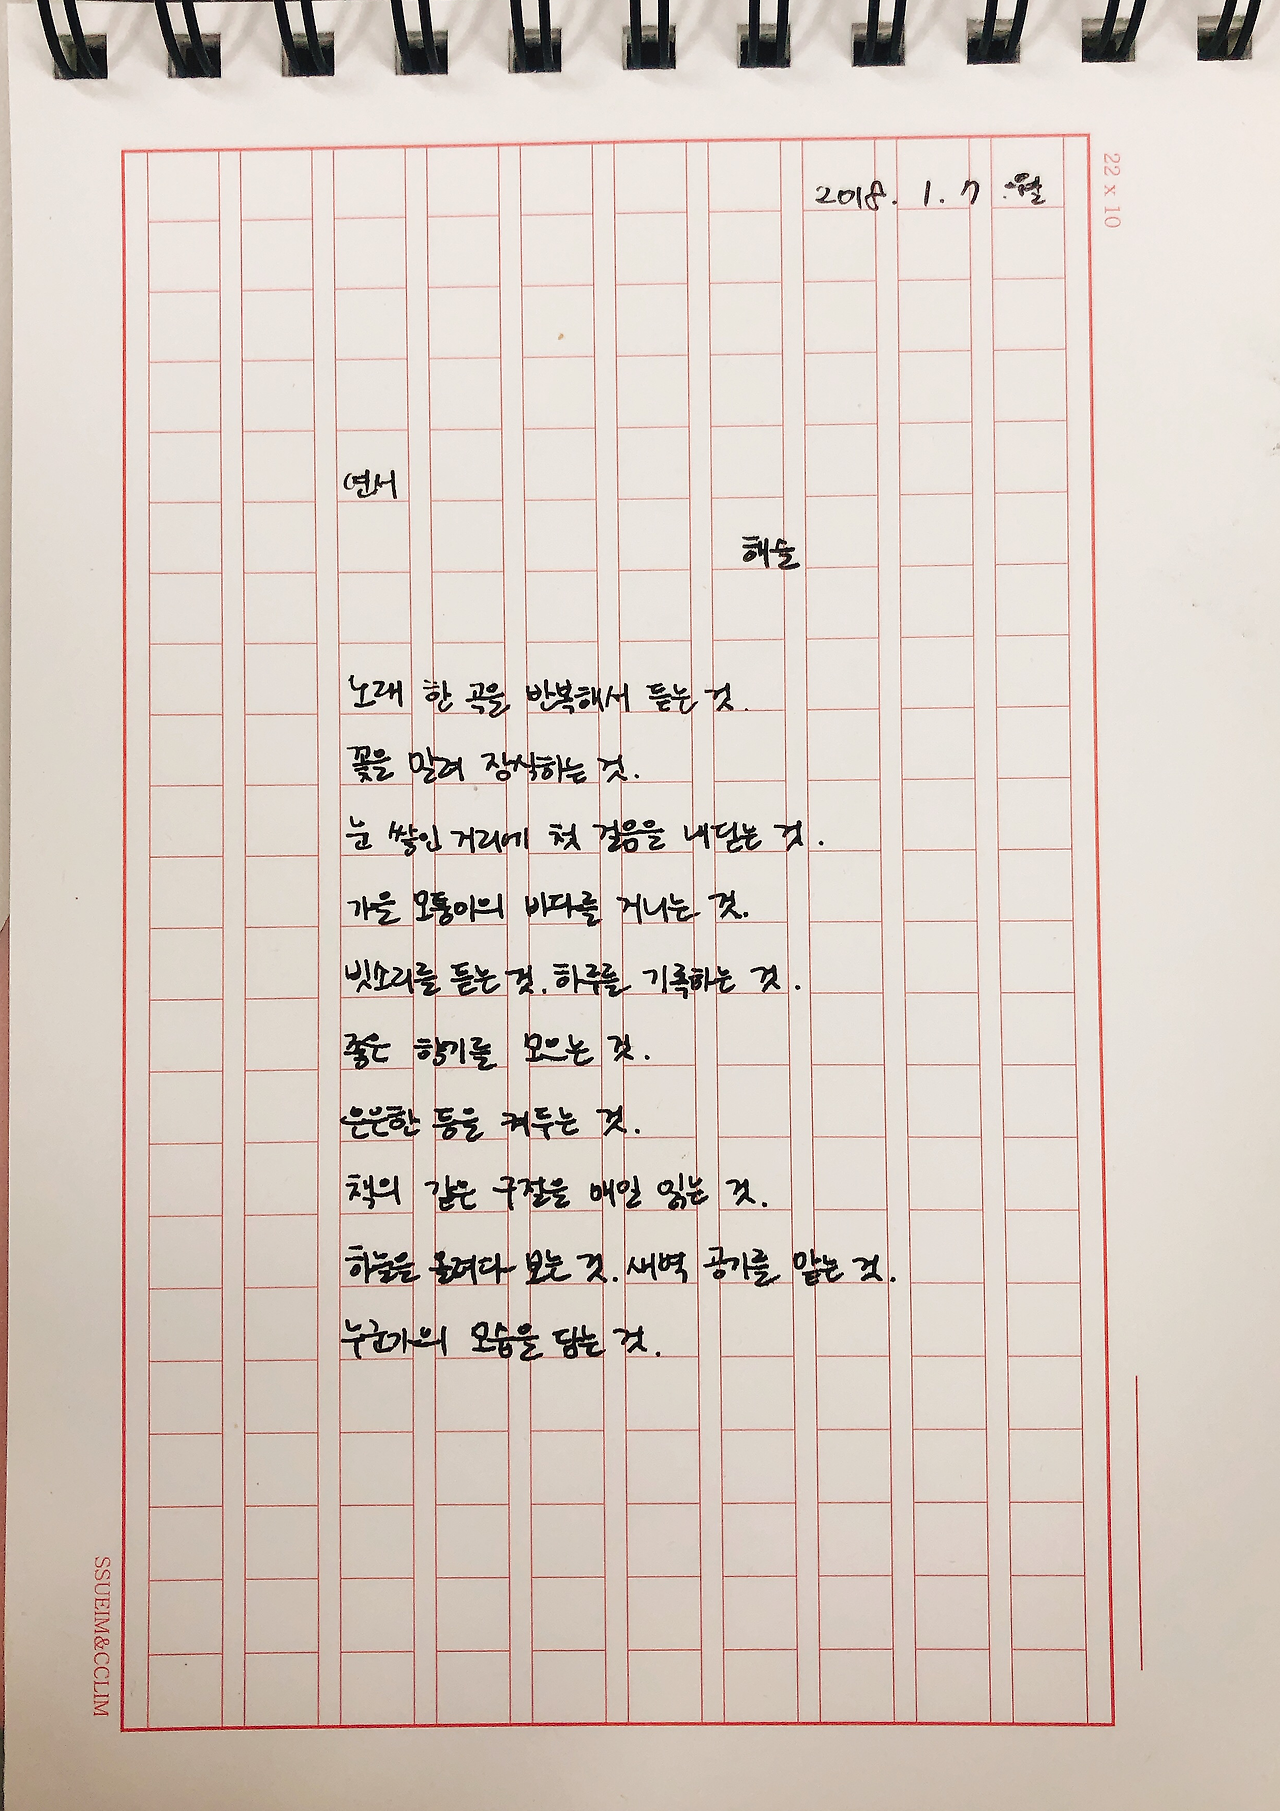 2018. 1. 7 월
22 x 10
연서
해슬
노래 한 곡을 반복해서 듣는 것.
꽃을 말려 장식하는 것.
눈 쌓인 거리에 첫 걸음을 내딛는 것.
가을 모퉁이의 바다를 거니는 것.
빗소리를 듣는 것. 하루를 기록하는 것.
좋은 향기를 모으는 것.
은은한 등을 켜두는 것.
책의 같은 구절을 매일 읽는 것.
하늘을 올려다 보는 것. 새벽 공기를 맡는 것.
누군가의 모습을 담는 것.
SSUEIM&CCLIM